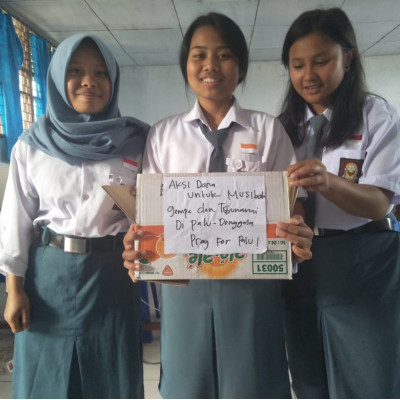 AKSI Dana
untuk Musibah
gempa dan Tsunami
Di Palu-Donggala
Pray For Palu !
ale-ale
50031